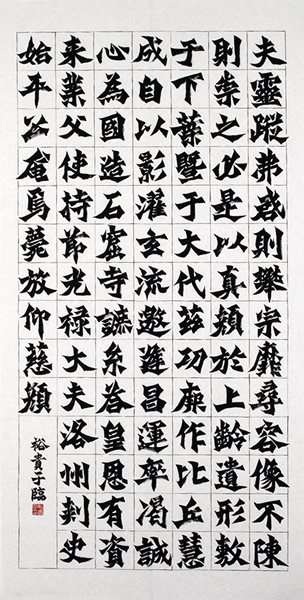 夫靈蹤弗惑則攀宗靡尋容像不陳
則崇之必是以真顏於上齡遺形敷
于下葉暨于大代茲功厥作比丘慧
成自以影濯玄流邀逢昌運率渴誠
心為國造石窟寺系答皇恩有資
来業父使持節光祿大夫洛州刺史
始平公奄焉薨放仰慈顏
裕貴子臨